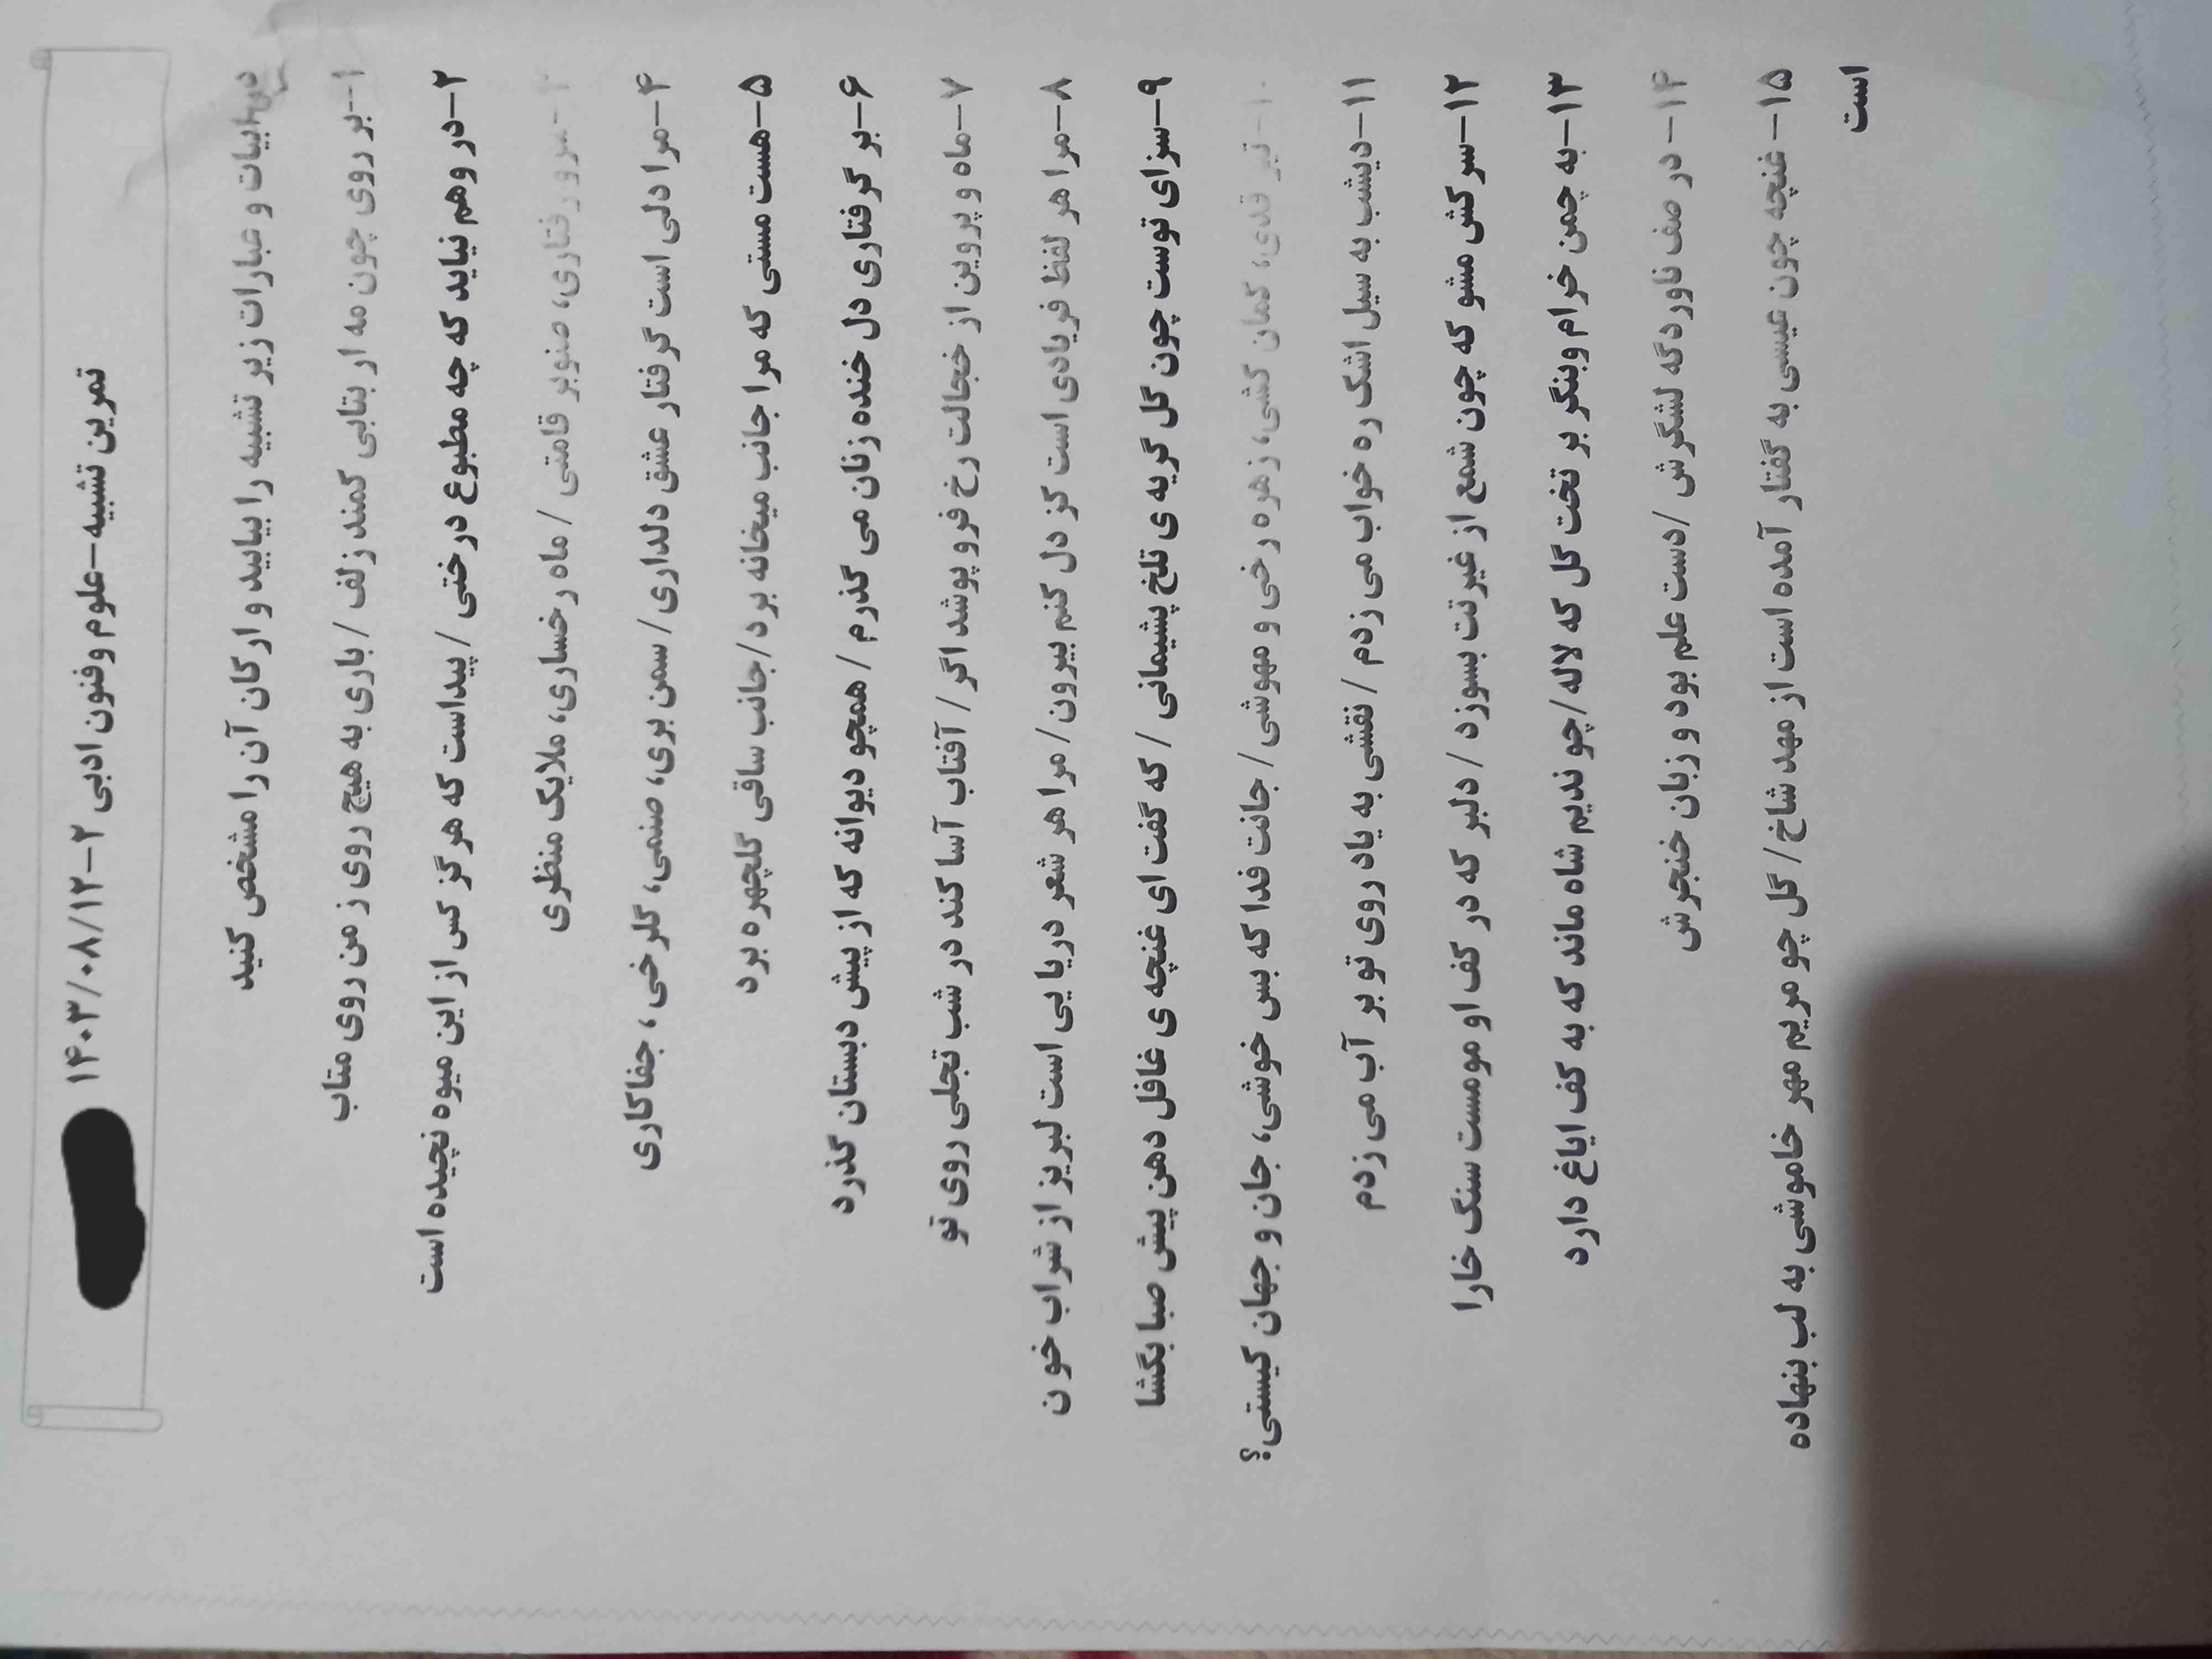 تمرین تشبیه-علوم وفنون ادبی ۲-۱۴۰۳/۰۸/۱۲
در ابیات و عبارات زیر تشبیه را بیابید و ارکان آن را مشخص کنید
۱-بر روی چون مه ار بتابی کمند زلف / باری به هیچ روی ز من روی متاب
۲-در وهم نیاید که چه مطبوع درختی / پیداست که هرگز کس از این میوه نچیده است
۳-سرو رفتاری، صنوبر قامتی / ماه رخساری، ملایک منظری
۴-مرا دلی است گرفتار عشق دلداری/ سمن بری، صنمی، گلرخی ، جفاکاری
۵-هست مستی که مرا جانب میخانه برد/ جانب ساقی گلچهره برد
۶-بر گرفتاری دل خنده زنان می گذرم / همچو دیوانه که از پیش دبستان گذرد
۷-ماه و پروین از خجالت رخ فرو پوشد اگر/ آفتاب آسا کند در شب تجلی روی تو
۸-مرا هر لفظ فریادی است کز دل کنم بیرون/ مرا هر شعر دریا یی است لبریز از شراب خو ن
۹-سزای توست چون گل گریه ی تلخ پشیمانی / که گفت ای غنچه ی غافل دهن پیش صبا بگشا
۱۰-تیر قدی، کمان کشی، زهره رخی و مهوشی/ جانت فدا که بس خوشی، جان و جهان کیستی؟
۱۱-دیشب به سیل اشک ره خواب می زدم / نقشی به یاد روی تو بر آب می زدم
۱۲-سرکش مشو که چون شمع از غیرتت بسوزد / دلبر که در کف او مومست سنگ خارا
۱۳-به چمن خرام وبنگر بر تخت گل که لاله/ چو ندیم شاه ماند که به کف ایاغ دارد
۱۴- در صف ناوردگه لشگرش /دست علم بود و زبان خنجرش
۱۵-غنچه چون عیسی به گفتار آمده است از مهد شاخ/ گل چو مریم مهر خاموشی به لب بنهاده
است